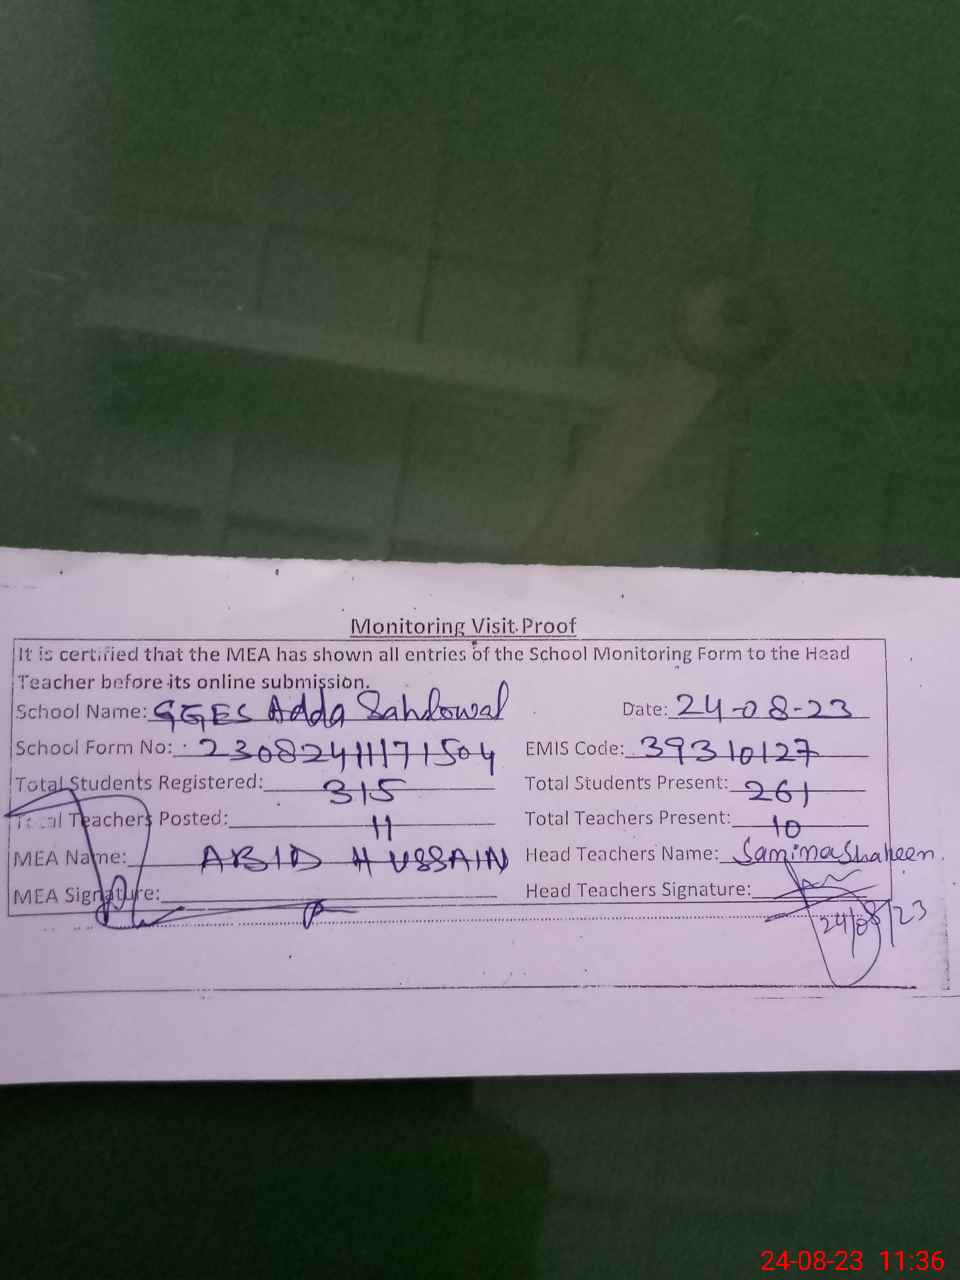 Monitoring Visit Proof
It is certified that the MEA has shown all entries of the School Monitoring Form to the Head
Teacher before its online submission.
School Name: GGES Adda Sahdowal Date: 24-08-23
School Form No: 23082411171504 EMIS Code: 39310127
Total Students Registered: 315 Total Students Present: 261
Total Teachers Posted: 11 Total Teachers Present: 10
MEA Name: ABID HUSSAIN Head Teachers Name: Samina Shaheen.
MEA Signature: Head Teachers Signature:
24/08/23
24-08-23 11:36